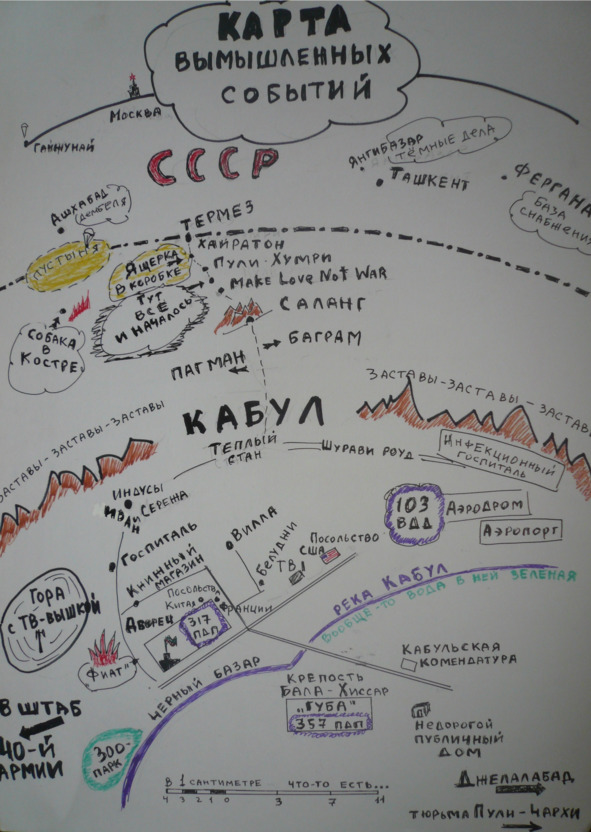 КАРТА
ВЫМЫШЛЕННЫХ
СОБЫТИЙ
МОСКВА
ГАЙЖУНАЙ
СССР
ЯНГИБАЗАР
ТЁМНЫЕ ДЕЛА
ТАШКЕНТ
ФЕРГАНА
БАЗА
СНАБЖЕНИЯ
АШХАБАД
ДЕМБЕЛЯ
ТЕРМЕЗ
ПУСТЫНЯ
ХАЙРАТОН
ЯЩЕРКА
В КОРОБКЕ
ПУЛИ-ХУМРИ
MAKE LOVE NOT WAR
ТУТ
ВСЁ
И НАЧАЛОСЬ
САЛАНГ
СОБАКА
В
КОСТРЕ
БАГРАМ
ПАГМАН
ЗАСТАВЫ-ЗАСТАВЫ-ЗАСТАВЫ
ЗАСТАВЫ-ЗАСТАВЫ-ЗАСТАВЫ
КАБУЛ
ТЕПЛЫЙ
СТАН
ШУРАВИ РОУД
ИНФЕКЦИОННЫЙ
ГОСПИТАЛЬ
ИНДУСЫ
ИВАЙ
СЕРЕЖА
103
ВДД
АЭРОДРОМ
АЭРОПОРТ
ГОСПИТАЛЬ
ВИЛЛА
БЕЛУДЖИ
ПОСОЛЬСТВО
США
ТВ
КНИЖНЫЙ
МАГАЗИН
ПОСОЛЬСТВО
КИТАЯ
ФРАНЦИИ
РЕКА КАБУЛ
ВООБЩЕ-ТО ВОДА В НЕЙ ЗЕЛЕНАЯ
ГОРА
С ТВ-ВЫШКОЙ
ДВОРЕЦ
317
ПДП
"ФИАТ"
КАБУЛЬСКАЯ
КОМЕНДАТУРА
ЧЕРНЫЙ БАЗАР
КРЕПОСТЬ
БАЛА-ХИССАР
"ГУБА"
357 ПДП
В ШТАБ
40-Й
АРМИИ
ЗОО-
ПАРК
НЕДОРОГОЙ
ПУБЛИЧНЫЙ
ДОМ
В 1 САНТИМЕТРЕ ЧТО-ТО ЕСТЬ...
4 3 2 1 0 3 7 11
ДЖЕЛАЛАБАД
ТЮРЬМА ПУЛИ-ЧАРХИ